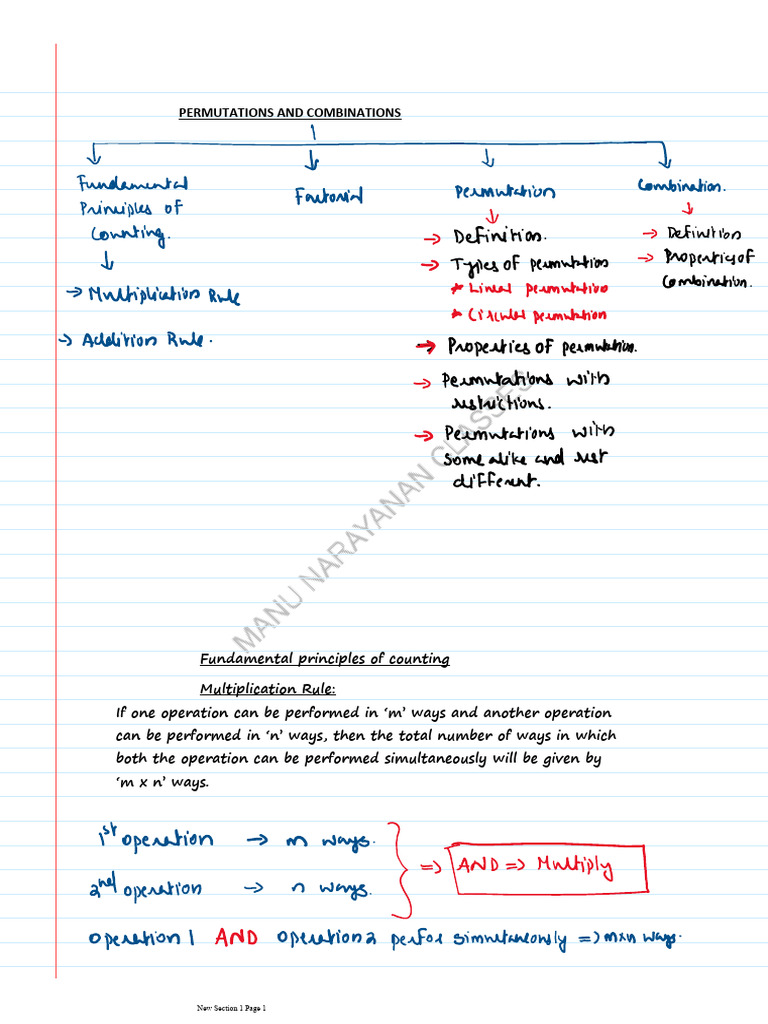 PERMUTATIONS AND COMBINATIONS
Fundamental
Principles of
Counting.
→ Multiplication Rule
→ Addition Rule.
Factorial
Permutation
→ Definition.
→ Types of permutation
* Linear permutation
* Circular permutation
→ Properties of permutation.
→ Permutations with
restrictions.
→ Permutations with
some alike and rest
different.
Combination.
→ Definition
→ Properties of
Combination.
MANU NARAYANAN CLASSES
Fundamental principles of counting
Multiplication Rule:
If one operation can be performed in ‘m’ ways and another operation
can be performed in ‘n’ ways, then the total number of ways in which
both the operation can be performed simultaneously will be given by
‘m x n’ ways.
1st operation → m ways.
2nd operation → n ways.
⇒ AND ⇒ Multiply
Operation 1 AND Operation 2 perfor simultaneously ⇒ m×n ways.
New Section 1 Page 1